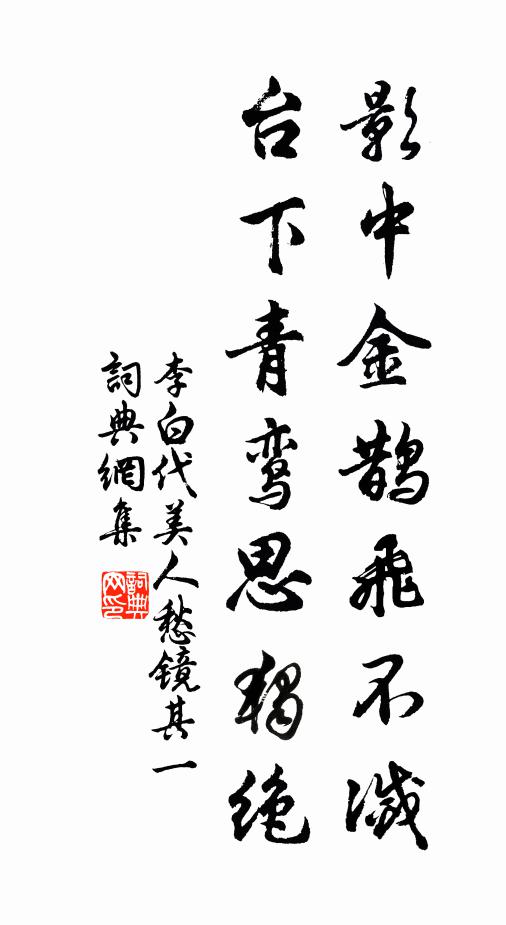 影中金鹊飞不滅
台下青鸾思獨绝
李白代美人愁镜其一
詞典網集
詞典网印